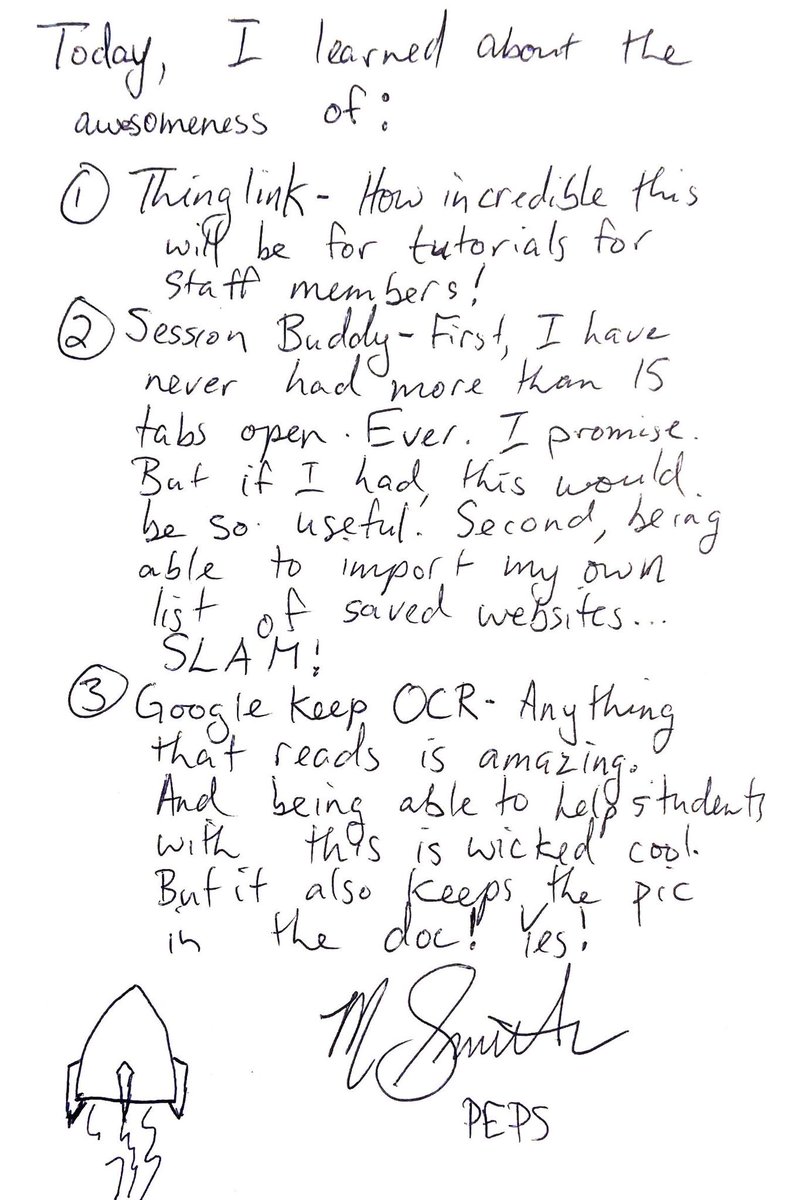 Today, I learned about the
awesomeness of:
① Thinglink - How incredible this
will be for tutorials for
staff members!
② Session Buddy - First, I have
never had more than 15
tabs open. Ever. I promise.
But if I had, this would
be so useful. Second, being
able to import my own
list of saved websites...
SLAM!
③ Google Keep OCR - Anything
that reads is amazing.
And being able to help students
with this is wicked cool.
But it also keeps the pic
in the doc! Yes!
M Smith
PEPS